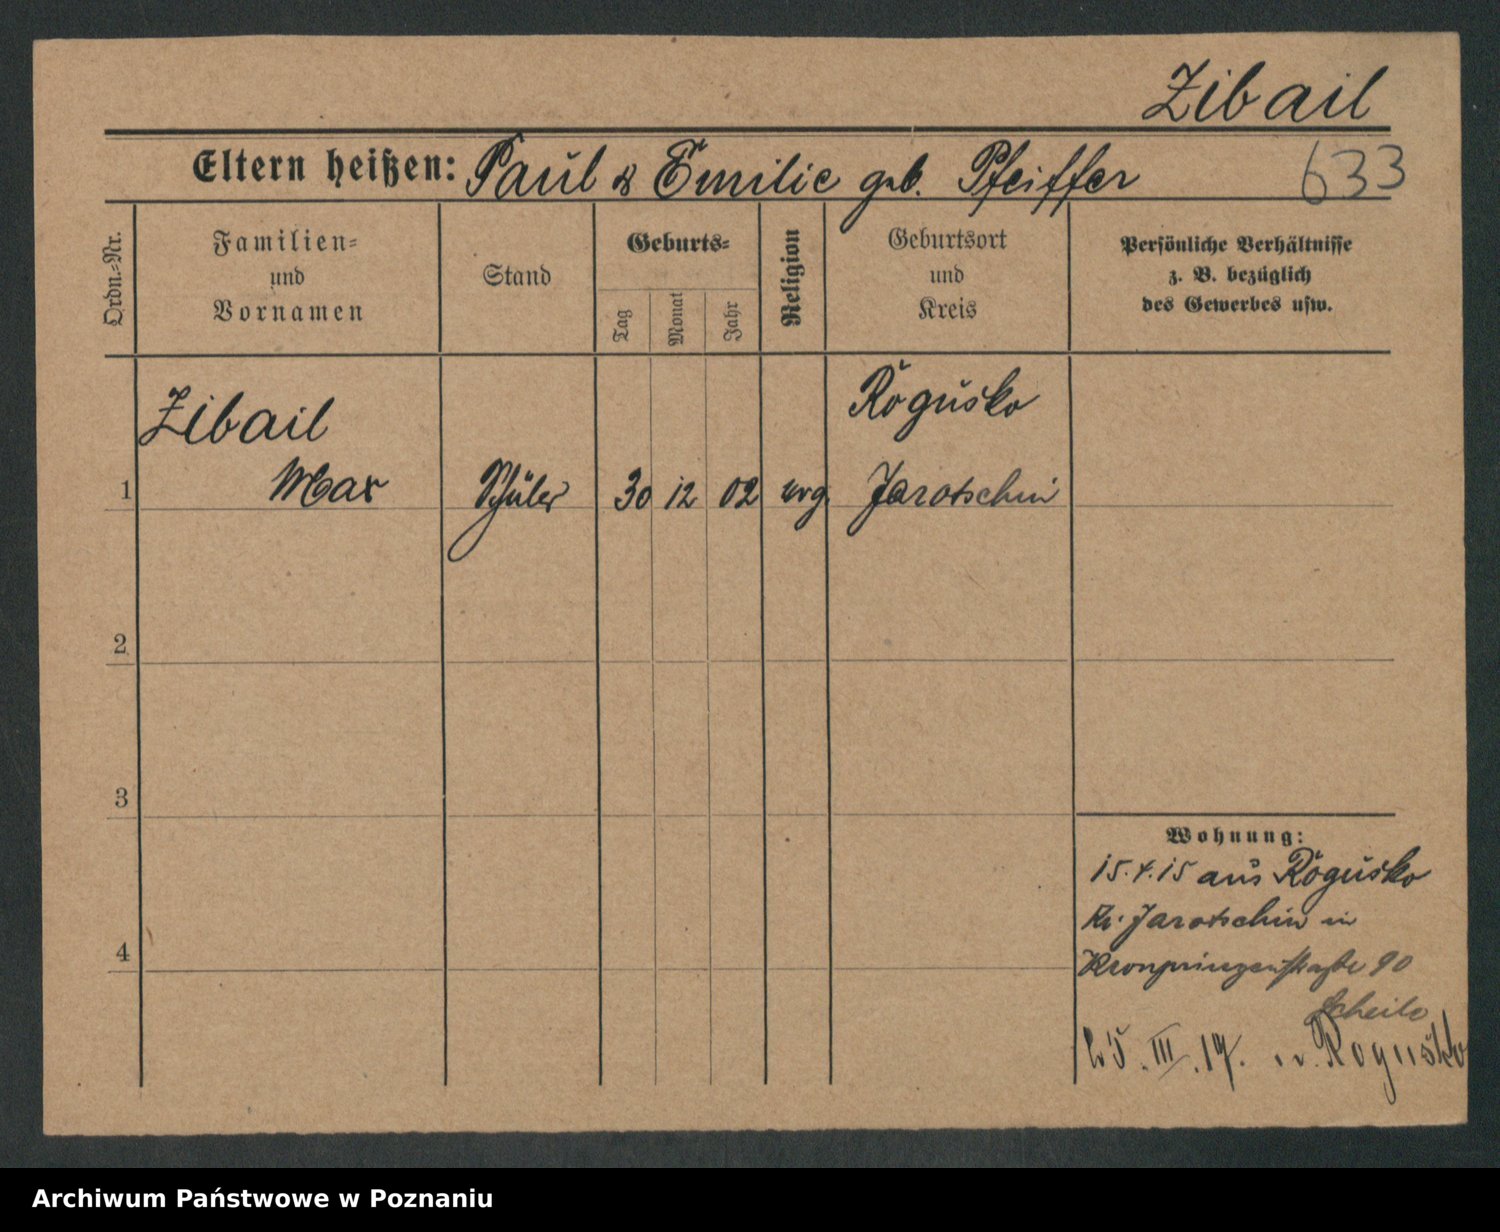 Zibail
Eltern heißen: Paul & Emilie geb. Pfeiffer
633
Ordn.-Nr.
Familien-
und
Vornamen
Stand
Geburts-
Tag
Monat
Jahr
Religion
Geburtsort
und
Kreis
Persönliche Verhältnisse
z. B. bezüglich
des Gewerbes usw.
Zibail
Rogusko
1 Max Schüler 30 12 02 evg Jarotschin
2
3
4
Wohnung:
15.4.15 aus Rogusko
Kr. Jarotschin in
Kronprinzenstraße 90
Scheile
25. III. 17. n. Rogusko
Archiwum Państwowe w Poznaniu